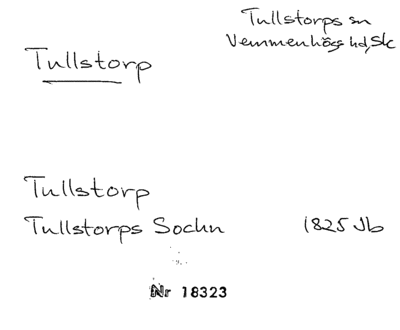 Tullstorps sn
Vemmenhögs hd, Sk
Tullstorp
Tullstorp
Tullstorps Sochn 1825 Jb
Nr 18323